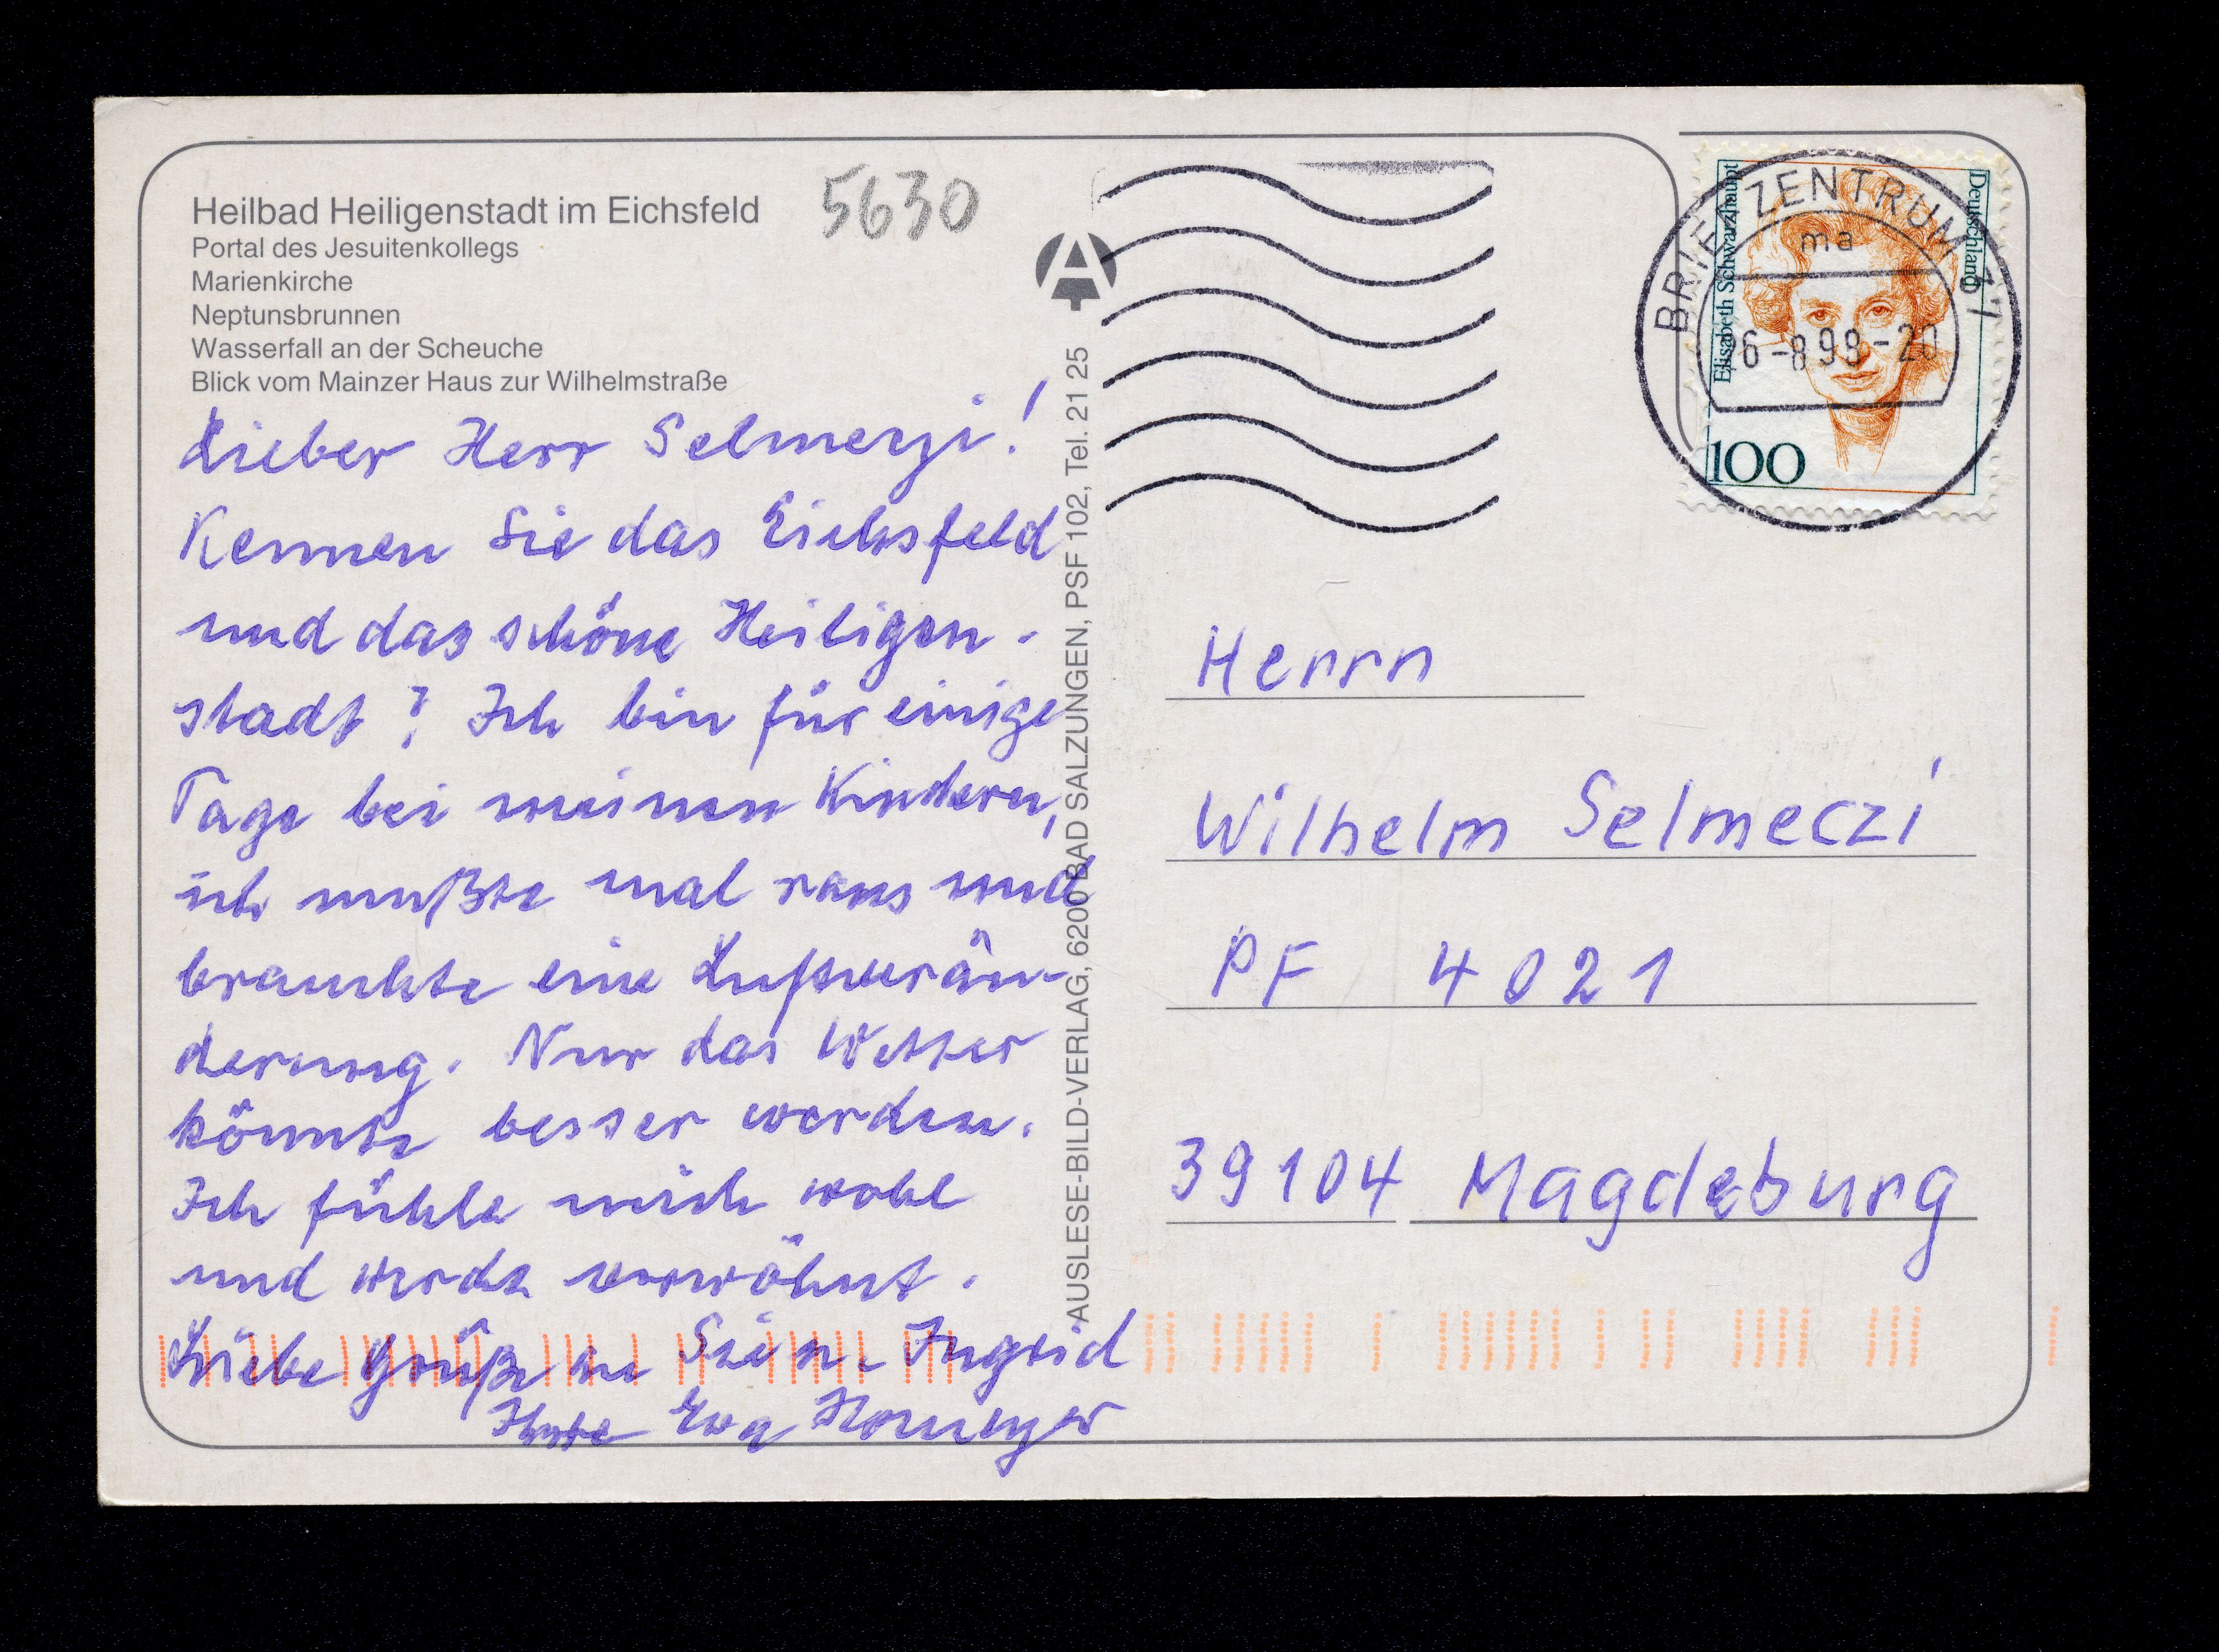 Heilbad Heiligenstadt im Eichsfeld
Portal des Jesuitenkollegs
Marienkirche
Neptunsbrunnen
Wasserfall an der Scheuche
Blick vom Mainzer Haus zur Wilhelmstraße
5630
Lieber Herr Selmerzi!
Kennen Sie das Eichsfeld
und das schöne Heiligen-
stadt? Ich bin für einige
Tage bei meinen Kindern,
ich mußte mal raus und
brauchte eine Luftverän-
derung. Nur das Wetter
könnte besser werden.
Ich fühle mich wohl
und werde verwöhnt.
Liebe Grüße an Sie u. Ingrid
Ihre Eva
AUSLESE-BILD-VERLAG, 6200 BAD SALZUNGEN, PSF 102, Tel. 21 25
BRIEFZENTRUM
ma
6-8 98-20
Deutschland
Elisabeth Schwarzhaupt
100
Herrn
Wilhelm Selmeczi
PF 4021
39104 Magdeburg